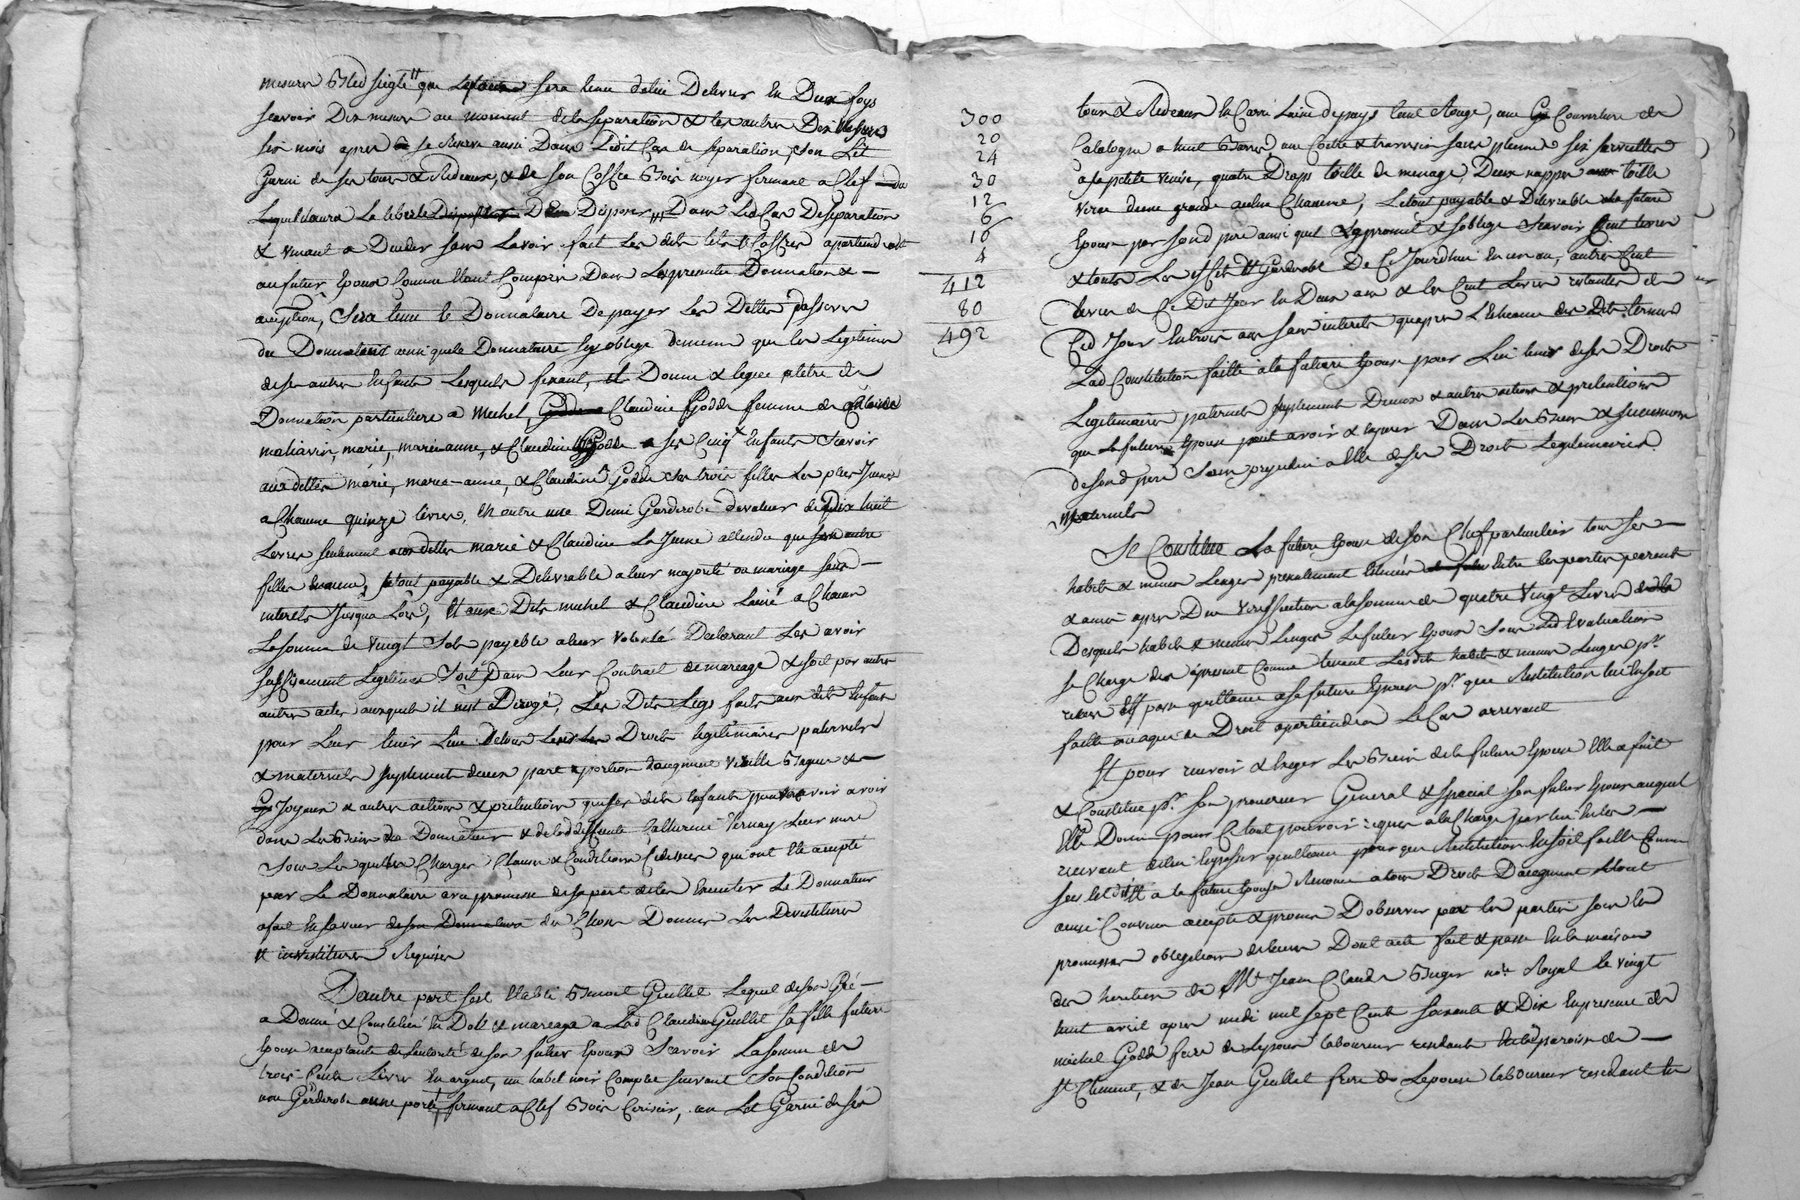 mesures Bled seigle que sera tenu delui Delivrer En Deux foys
scavoir Dix mesures au moment dela separation & les autres Dix mesures
six mois apres se Reserve aussi Dans Ledit Cas de separation son Lit
Garni de ses tours & Rideaux, & de son Coffre Bois noyer fermant a Clef du
Lequel aura La liberté Disposer Dans Led Cas De separation
& venant a Deceder sans Lavoir fait Les dits lits & Coffres apartiendront
au futur Epoux Comme Etant Compris Dans La presente Donnation &
acception, Sera tenu le Donnataire De payer Les Dettes passives
du Donnateur ainsi que le Donnataire sy oblige de meme que les Legitimes
de ses autres Enfants Lesquels faisant, il Donne & legue a titre de
Donnation particuliere a Michel, Claudine Godde femme de Claude
mathavin, marie, marie anne, & Claudine Godde ses Cinq Enfants Scavoir
aux dittes marie, marie-anne, & Claudine Godde ses trois filles Les plus Jeunes
a Chacune quinze Livres, En outre une Demi Garderobe de valeur de Dix huit
Livres seulement aux dittes marie & Claudine La Jeune attendu que son autre
fille En a eu, le tout payable & Delivrable a leur majorité ou mariage sans
interets Jusqua Lors, Et aux Dits michel & Claudine L'ainé a Chacun
La somme de vingt Sols payable a leur volonté Declarant Les avoir
suffisament Legitimés Soit Dans Leur Contrait de mareage & soit par autre
autres actes auxquels il n'est Derogé, Les Dits Legs faits aux dits Enfants
pour Leur tenir Lieu de tous Droits legitimaires paternels
& maternels suplement diceux part & portion d'augment vieille Bagues &
Joyaux & autres actions & pretentions que ses dits Enfants pourroit avoir
dans Les Biens du Donnateur & de lad deffunte Catherine Vernay Leur mere
Sous Les quelles Charges Clauses & Conditions Cydessus qui ont Eté accepté
par Le Donnataire avec promesse de sa part de les Executer Le Donnateur
a fait En faveur de son Donnataire des Choses Donnees Les Devestitures
& investitures Requises
D'autre part s'est Etabli Benoit Guillet Lequel de son Gré
a Donné & Constitué En Dot & mareage a Lad Claudine Guillet sa fille future
Epouse acceptante de l'autorité de son futur Epoux Scavoir La somme de
trois Cents Livres En argent, un habit noir Complet suivant Son Condition
une Garderobe a une porte fermant a Clef Bois Cerisier, un Lit Garni de ses
300
20
24
30
12
6
16
4
412
80
492
tours & Rideaux En Carré Laine du pays tout Rouge, une Couverture de
Catalogne a huit Barres une Coette & traversin sans plume six serviettes
a la petite venise, quatre Draps toille de menage Deux nappes toille
Verge d'une grande aulne Chacune, Le tout payable & Delivrable a la future
Epouse par son d pere ainsi quil promet & soblige Scavoir Cent Livres
& touts Les effets & Garderobe De Ce Jourdhui En un an, autres Cent
Livres de Ce Dit Jour En Deux ans & les Cent Livres restantes de
Ced Jour En trois ans sans interets quapres L'Echeance des Dits termes
Lad Constitution faitte a la future Epouse pour Lui tenir de ses Droits
Legitimaires paternels suplement Diceux & autres actions & pretentions
que la future Epouse peut avoir & esperer Dans Les Biens & succession
de sond pere Sans prejudice a Elle de ses Droits Legitimaires
Maternels
Se Constitue La future Epouse de son Chef particulier tous ses
habits & menus Linges presentement Estimés Entre les parties parents
& amis apres Due Verification a la somme de quatre Vingt Livres
Desquels habits & menus Linges Le futur Epoux Sous Lad Evaluation
se Charge des a present Comme tenant Lesdits habits & menus Linges pr
receus & passe quittance a sa future Epouse pr que Restitution lui En soit
faitte ou a qui de Droit apartiendra Le Cas arrivant
Et pour recevoir & Exiger Les Biens de la future Epouse Elle a fait
& Constitue pr Son procureur General & special Son futur Epoux auquel
Elle Donne pour Ce tout pouvoir requis a la Charge par lui En les
recevant de lui En passer quittance pour que Restitution En soit faitte Comme
sus Est dit & a la future Epouse Renonce a tous Droits D'augment Le tout
ainsi Convenu accepté & promis D'observer par les parties sous les
promesses obligations de biens Dont acte fait & passé En la maison
des heritiers de Me Jean Claude Buges nore Royal Le vingt
huit avril apres midi mil sept Cents soixante & Dix En presence de
michel Godde frere de L'epoux laboureur residant En la paroisse de
St Clement, & de Jean Guillet frere de L'epouse laboureur residant En